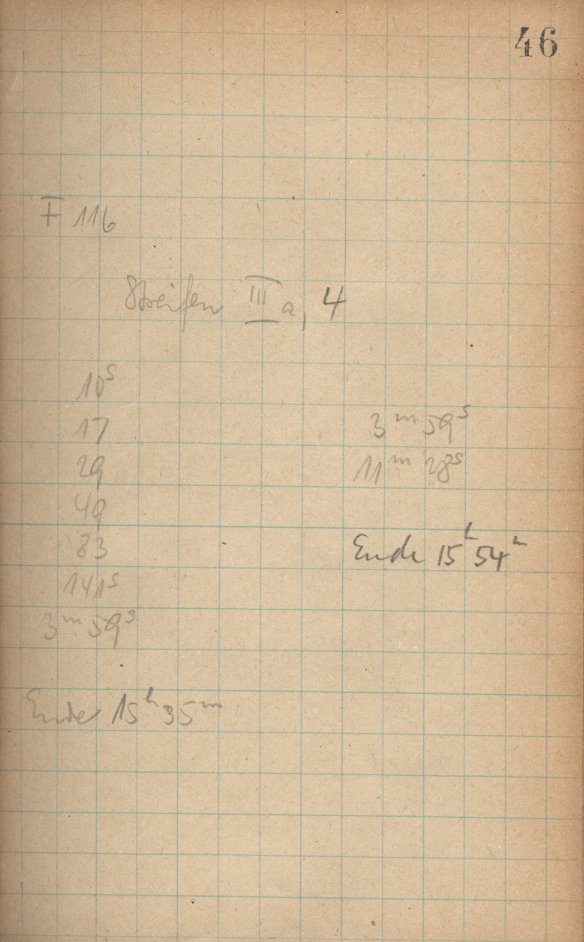 46
F 116
Streifen III a, 4
10s
17
29
49
83
141s
3m 59s
Ende 15h 35m
3m 59s
11m 28s
Ende 15h 54m